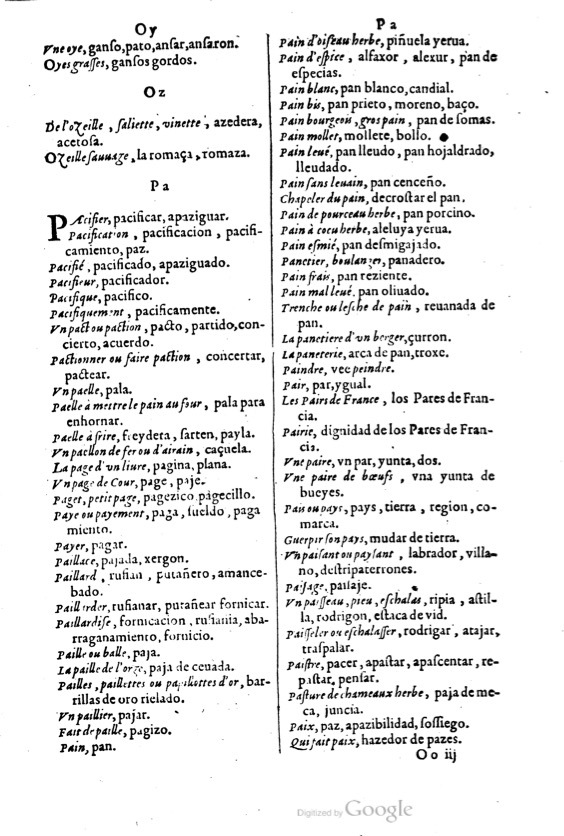 Oy
Vne oye, ganſo, pato, anſar, anſaron.
Oyes graſſes, ganſos gordos.
Oz
De l'oZeille, ſaliette, vinette, azedera,
acetoſa.
OZeille ſauuage, la romaça, romaza.
Pa
PAcifier, pacificar, apaziguar.
Pacification, pacificacion, pacifi-
camiento, paz.
Pacifié, pacificado, apaziguado.
Pacifieur, pacificador.
Pacifique, pacifico.
Pacifiquement, pacificamente.
Vn pact ou paction, pacto, partido, con-
cierto, acuerdo.
Pactionner ou faire paction, concertar,
pactear.
Vn paelle, pala.
Paelle à mettre le pain au four, pala para
enhornar.
Paelle à frire, freydera, ſarten, payla.
Vn paellon de fer ou d'airain, caçuela.
La page d'vn liure, pagina, plana.
Vn page de Cour, page, paje.
Paget, petit page, pagezico pagecillo.
Paye ou payement, paga, ſueldo, paga
miento.
Payer, pagar.
Paillace, pajada, xergon.
Paillard, rufian, putañero, amance-
bado.
Paillarder, rufianar, putañear fornicar.
Paillardiſe, fornicacion, rufiania, aba-
rraganamiento, fornicio.
Paille ou balle, paja.
La paille de l'orge, paja de ceuada.
Pailles, paillettes ou papillottes d'or, bar-
rillas de oro rielado.
Vn paillier, pajar.
Fait de paille, pagizo.
Pain, pan.
Pa
Pain d'oiſeau herbe, piñuela yerua.
Pain d'eſpice, alfaxor, alexur, pan de
eſpecias.
Pain blanc, pan blanco, candial.
Pain bis, pan prieto, moreno, baço.
Pain bourgeois, gros pain, pan de ſomas.
Pain mollet, mollete, bollo.
Pain leué, pan lleudo, pan hojaldrado,
lleudado.
Pain ſans leuain, pan cenceño.
Chapeler du pain, decroſtar el pan.
Pain de pourceau herbe, pan porcino.
Pain à cocu herbe, aleluya yerua.
Pain eſmié, pan deſmigajado.
Panetier, boulanger, panadero.
Pain frais, pan reziente.
Pain mal leué, pan oliuado.
Trenche ou leſche de pain, reuanada de
pan.
La panetiere d'vn berger, çurron.
La paneterie, arca de pan, troxe.
Paindre, vee peindre.
Pair, par, ygual.
Les Pairs de France, los Pares de Fran-
cia.
Pairie, dignidad de los Pares de Fran-
cia.
Vne paire, vn par, yunta, dos.
Vne paire de bœufs, vna yunta de
bueyes.
Pais ou pays, pays, tierra, region, co-
marca.
Guerpir ſon pays, mudar de tierra.
Vn paiſant ou payſant, labrador, villa-
no, deſtriparerrones.
Paiſage, paiſaje.
Vn paiſſeau, pieu, eſchalas, ripia, aſtil-
la, rodrigon, eſtaca de vid.
Paiſſeler ou eſchalaſſer, rodrigar, atajar,
traſpalar.
Paiſtre, pacer, apaſtar, apaſcentar, re-
paſtar, penſar.
Paſture de chameaux herbe, paja de me-
ca, juncia.
Paix, paz, apazibilidad, ſoſſiego.
Qui fait paix, hazedor de pazes.
Oo iij
Digitized by Google